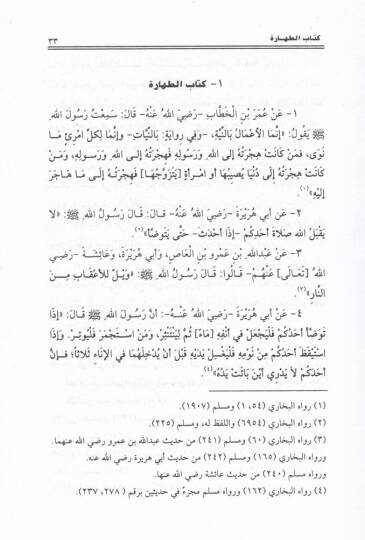 كتاب الطهارة ٣٣
١- كتاب الطهارة
١- عَنْ عُمَرَ بْنِ الْخَطَّابِ -رَضِيَ اللهُ عَنْهُ- قَالَ: سَمِعْتُ رَسُولَ اللهِ
ﷺ يَقُولُ: «إِنَّمَا الأَعْمَالُ بِالنِّيَّةِ، -وَفِي رِوَايَةٍ: بِالنِّيَّاتِ- وَإِنَّمَا لِكُلِّ امْرِئٍ مَا
نَوَى، فَمَنْ كَانَتْ هِجْرَتُهُ إِلَى اللهِ وَرَسُولِهِ فَهِجْرَتُهُ إِلَى اللهِ وَرَسولِهِ، وَمَنْ
كَانَتْ هِجْرَتُهُ إِلَى دُنْيَا يُصِيبُهَا أو امْرأةٍ [يَتَزَوَّجُهَا] فَهِجْرَتُهُ إِلَى مَا هَاجَرَ
إِلَيْهِ»(١).
٢- عَنْ أَبِي هُرَيْرَةَ -رَضِيَ اللهُ عَنْهُ- قَالَ: قَالَ رَسُولُ اللهِ ﷺ: «لا
يَقْبَلُ اللهُ صَلاةَ أَحَدِكُمْ -إِذَا أَحْدَثَ- حَتَّى يَتَوَضَّأَ»(١).
٣- عَنْ عَبْدِاللهِ بْنِ عَمْرِو بْنِ الْعَاصِ، وَأَبِي هُرَيْرَةَ، وَعَائِشَةَ -رَضِيَ
اللهُ [تَعَالَى] عَنْهُمْ- قَالُوا: قَالَ رَسُولُ اللهِ ﷺ: «وَيْلٌ لِلأَعْقَابِ مِنَ
النَّارِ»(٢).
٤- عَنْ أَبِي هُرَيْرَةَ -رَضِيَ اللهُ عَنْهُ-: أَنَّ رَسُولَ اللهِ ﷺ قَالَ: «إِذَا
تَوَضَّأَ أَحَدُكُمْ فَلْيَجْعَلْ فِي أَنْفِهِ [مَاءً] ثُمَّ لِيَنْتَثِرْ، وَمَنْ اسْتَجْمَرَ فَلْيُوتِرْ. وَإِذَا
اسْتَيْقَظَ أَحَدُكُمْ مِنْ نَوْمِهِ فَلْيَغْسِلْ يَدَيْهِ قَبْلَ أَنْ يُدْخِلَهُمَا فِي الإِنَاءِ ثَلاثاً؛ فَإِنَّ
أَحَدَكُمْ لا يَدْرِي أَيْنَ بَاتَتْ يَدُهُ»(٤).
(١) رواه البخاري (١، ٥٤) ومسلم (١٩٠٧).
(٢) رواه البخاري (٦٩٥٤) واللفظ له، ومسلم (٢٢٥).
(٣) رواه البخاري (٦٠) ومسلم (٢٤١) من حديث عبدالله بن عمرو رضي الله عنهما.
ورواه البخاري (١٦٥) ومسلم (٢٤٢) من حديث أبي هريرة رضي الله عنه.
ورواه مسلم (٢٤٠) من حديث عائشة رضي الله عنها.
(٤) رواه البخاري (١٦٢) ورواه مسلم مجزءً في حديثين برقم (٢٧٨، ٢٣٧).